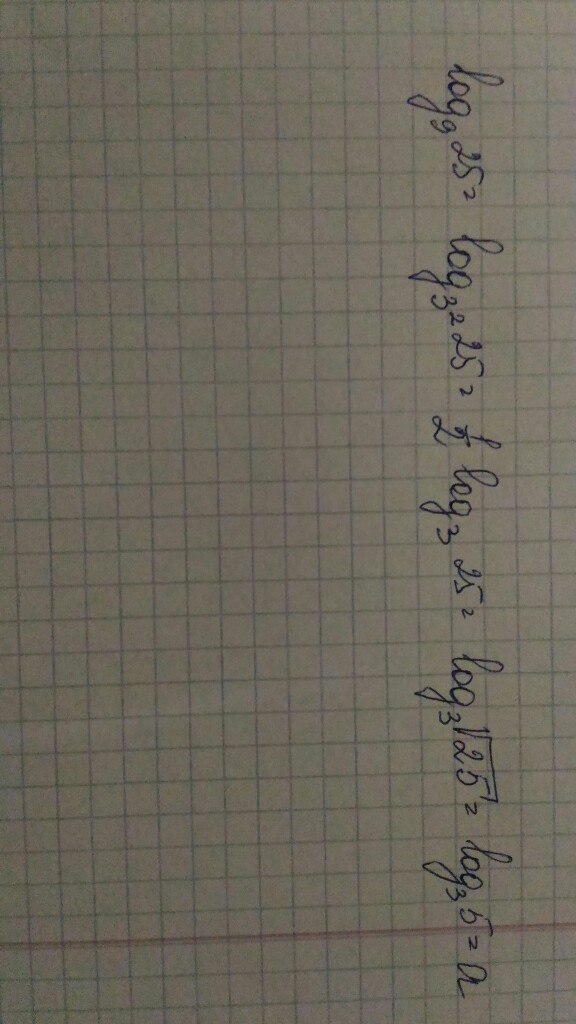 log₉ 25 = log₃² 25 = ½ log₃ 25 = log₃ √25 = log₃ 5 = a